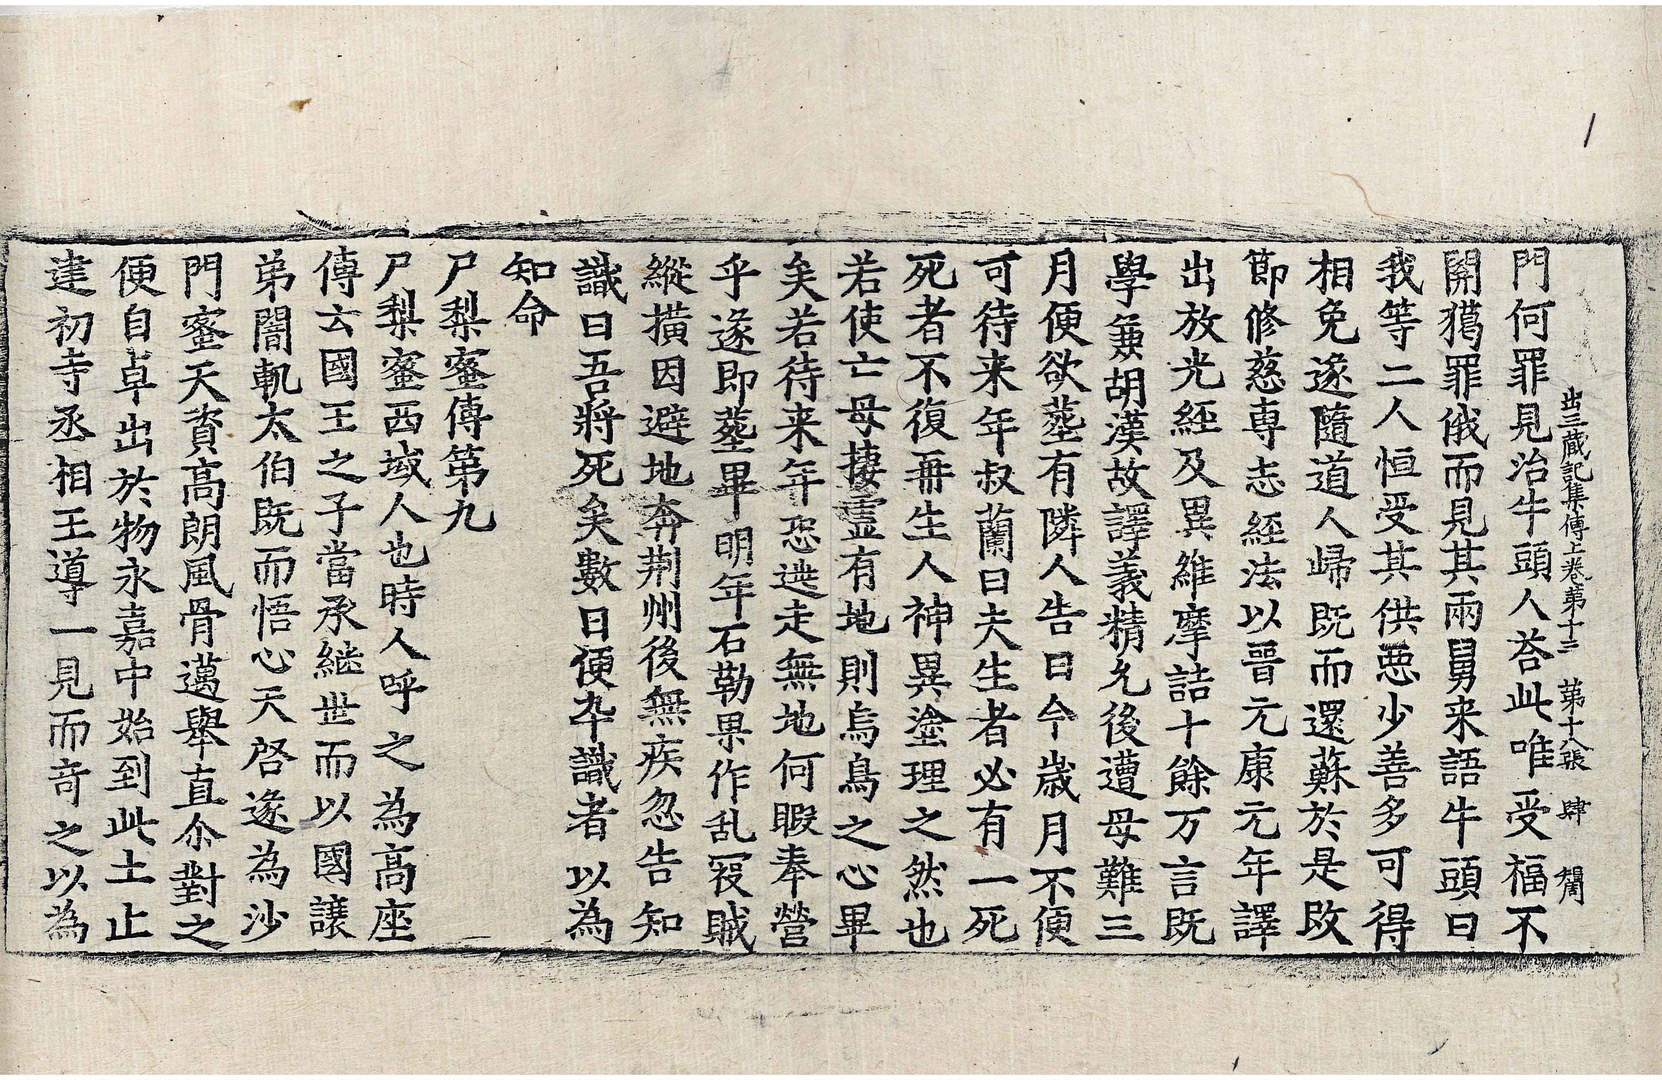 出三藏記集傳上卷第十三 第十八張 肆
門何罪見治牛頭人荅此唯受福不
關獦罪俄而見其兩舅来語牛頭曰
我等二人恒受其供惡少善多可得
相免遂隨道人歸既而還蘇於是改
節修慈専志經法以晉元康元年譯
出放光經及異維摩詰十餘万言既
學兼胡漢故譯義精允後遭母難三
月便欲塟有隣人告曰今歳月不便
可待来年叔蘭曰夫生者必有一死
死者不復再生人神異塗理之然也
若使亡母棲靈有地則烏鳥之心畢
矣若待来年恐逃走無地何暇奉營
乎遂即塟畢明年石勒果作乱寇賊
縱横因避地奔荆州後無疾忽告知
識曰吾將死矣數日便卒識者以為
知命
尸梨蜜傳第九
尸梨蜜西域人也時人呼之為高座
傳云國王之子當承継世而以國讓
弟闇軌太伯既而悟心天啓遂為沙
門蜜天資高朗風骨邁舉直尒對之
便自卓出於物永嘉中始到此土止
建初寺丞相王導一見而奇之以為